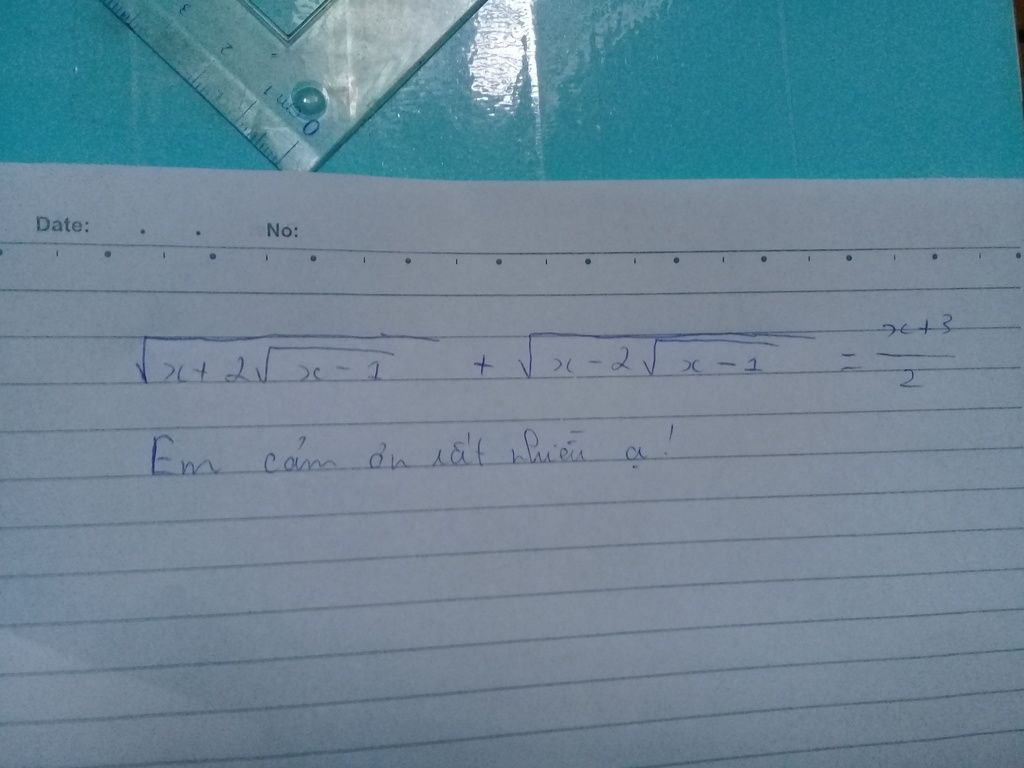 Date: No:
√(x + 2√(x - 1)) + √(x - 2√(x - 1)) = (x + 3)/2
Em cảm ơn rất nhiều ạ!